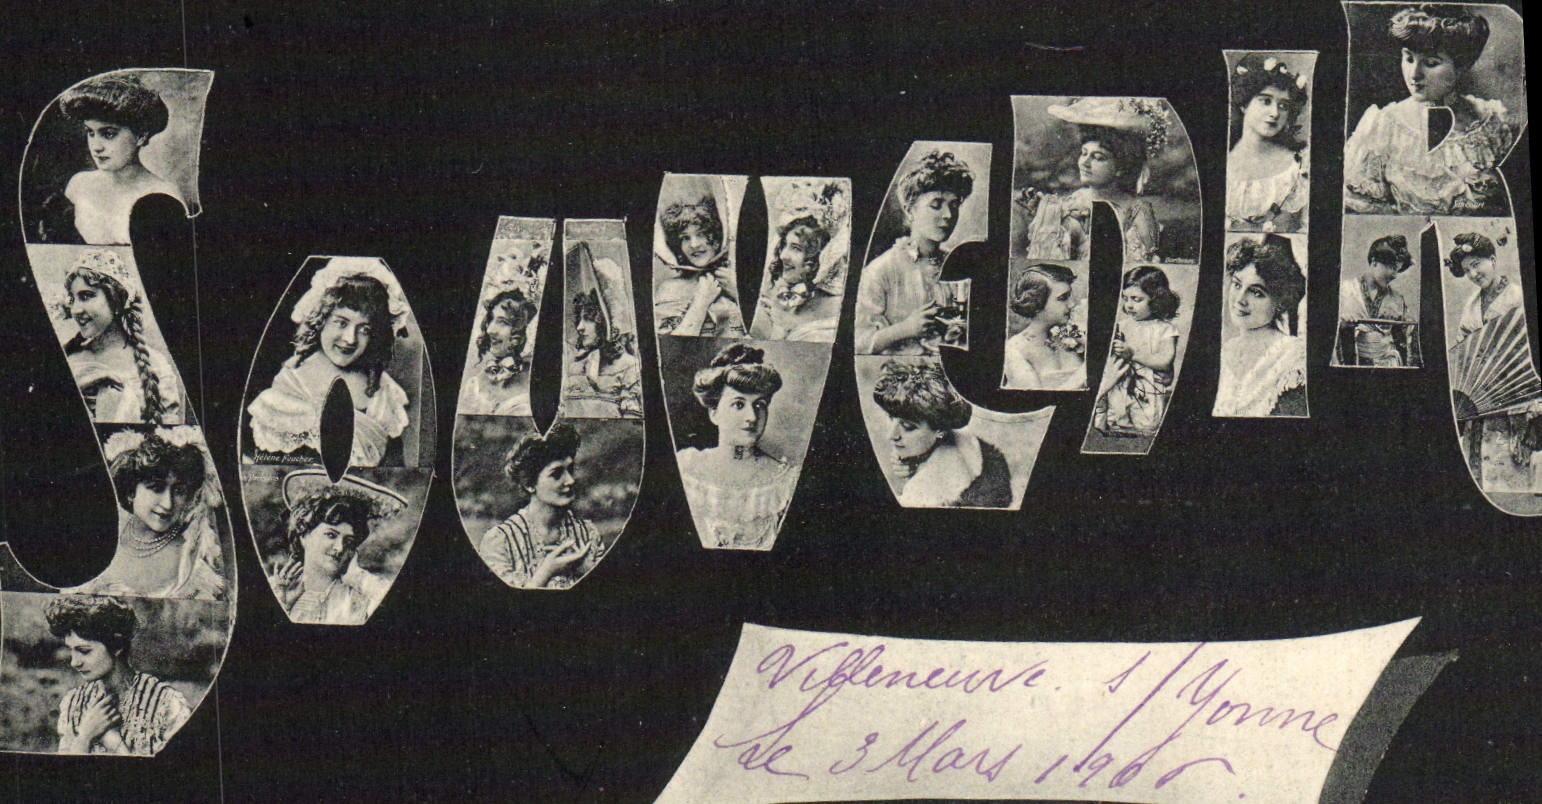 SOUVENIR
Hélène Foucher
Villeneuve. s/Yonne
Le 3 Mars